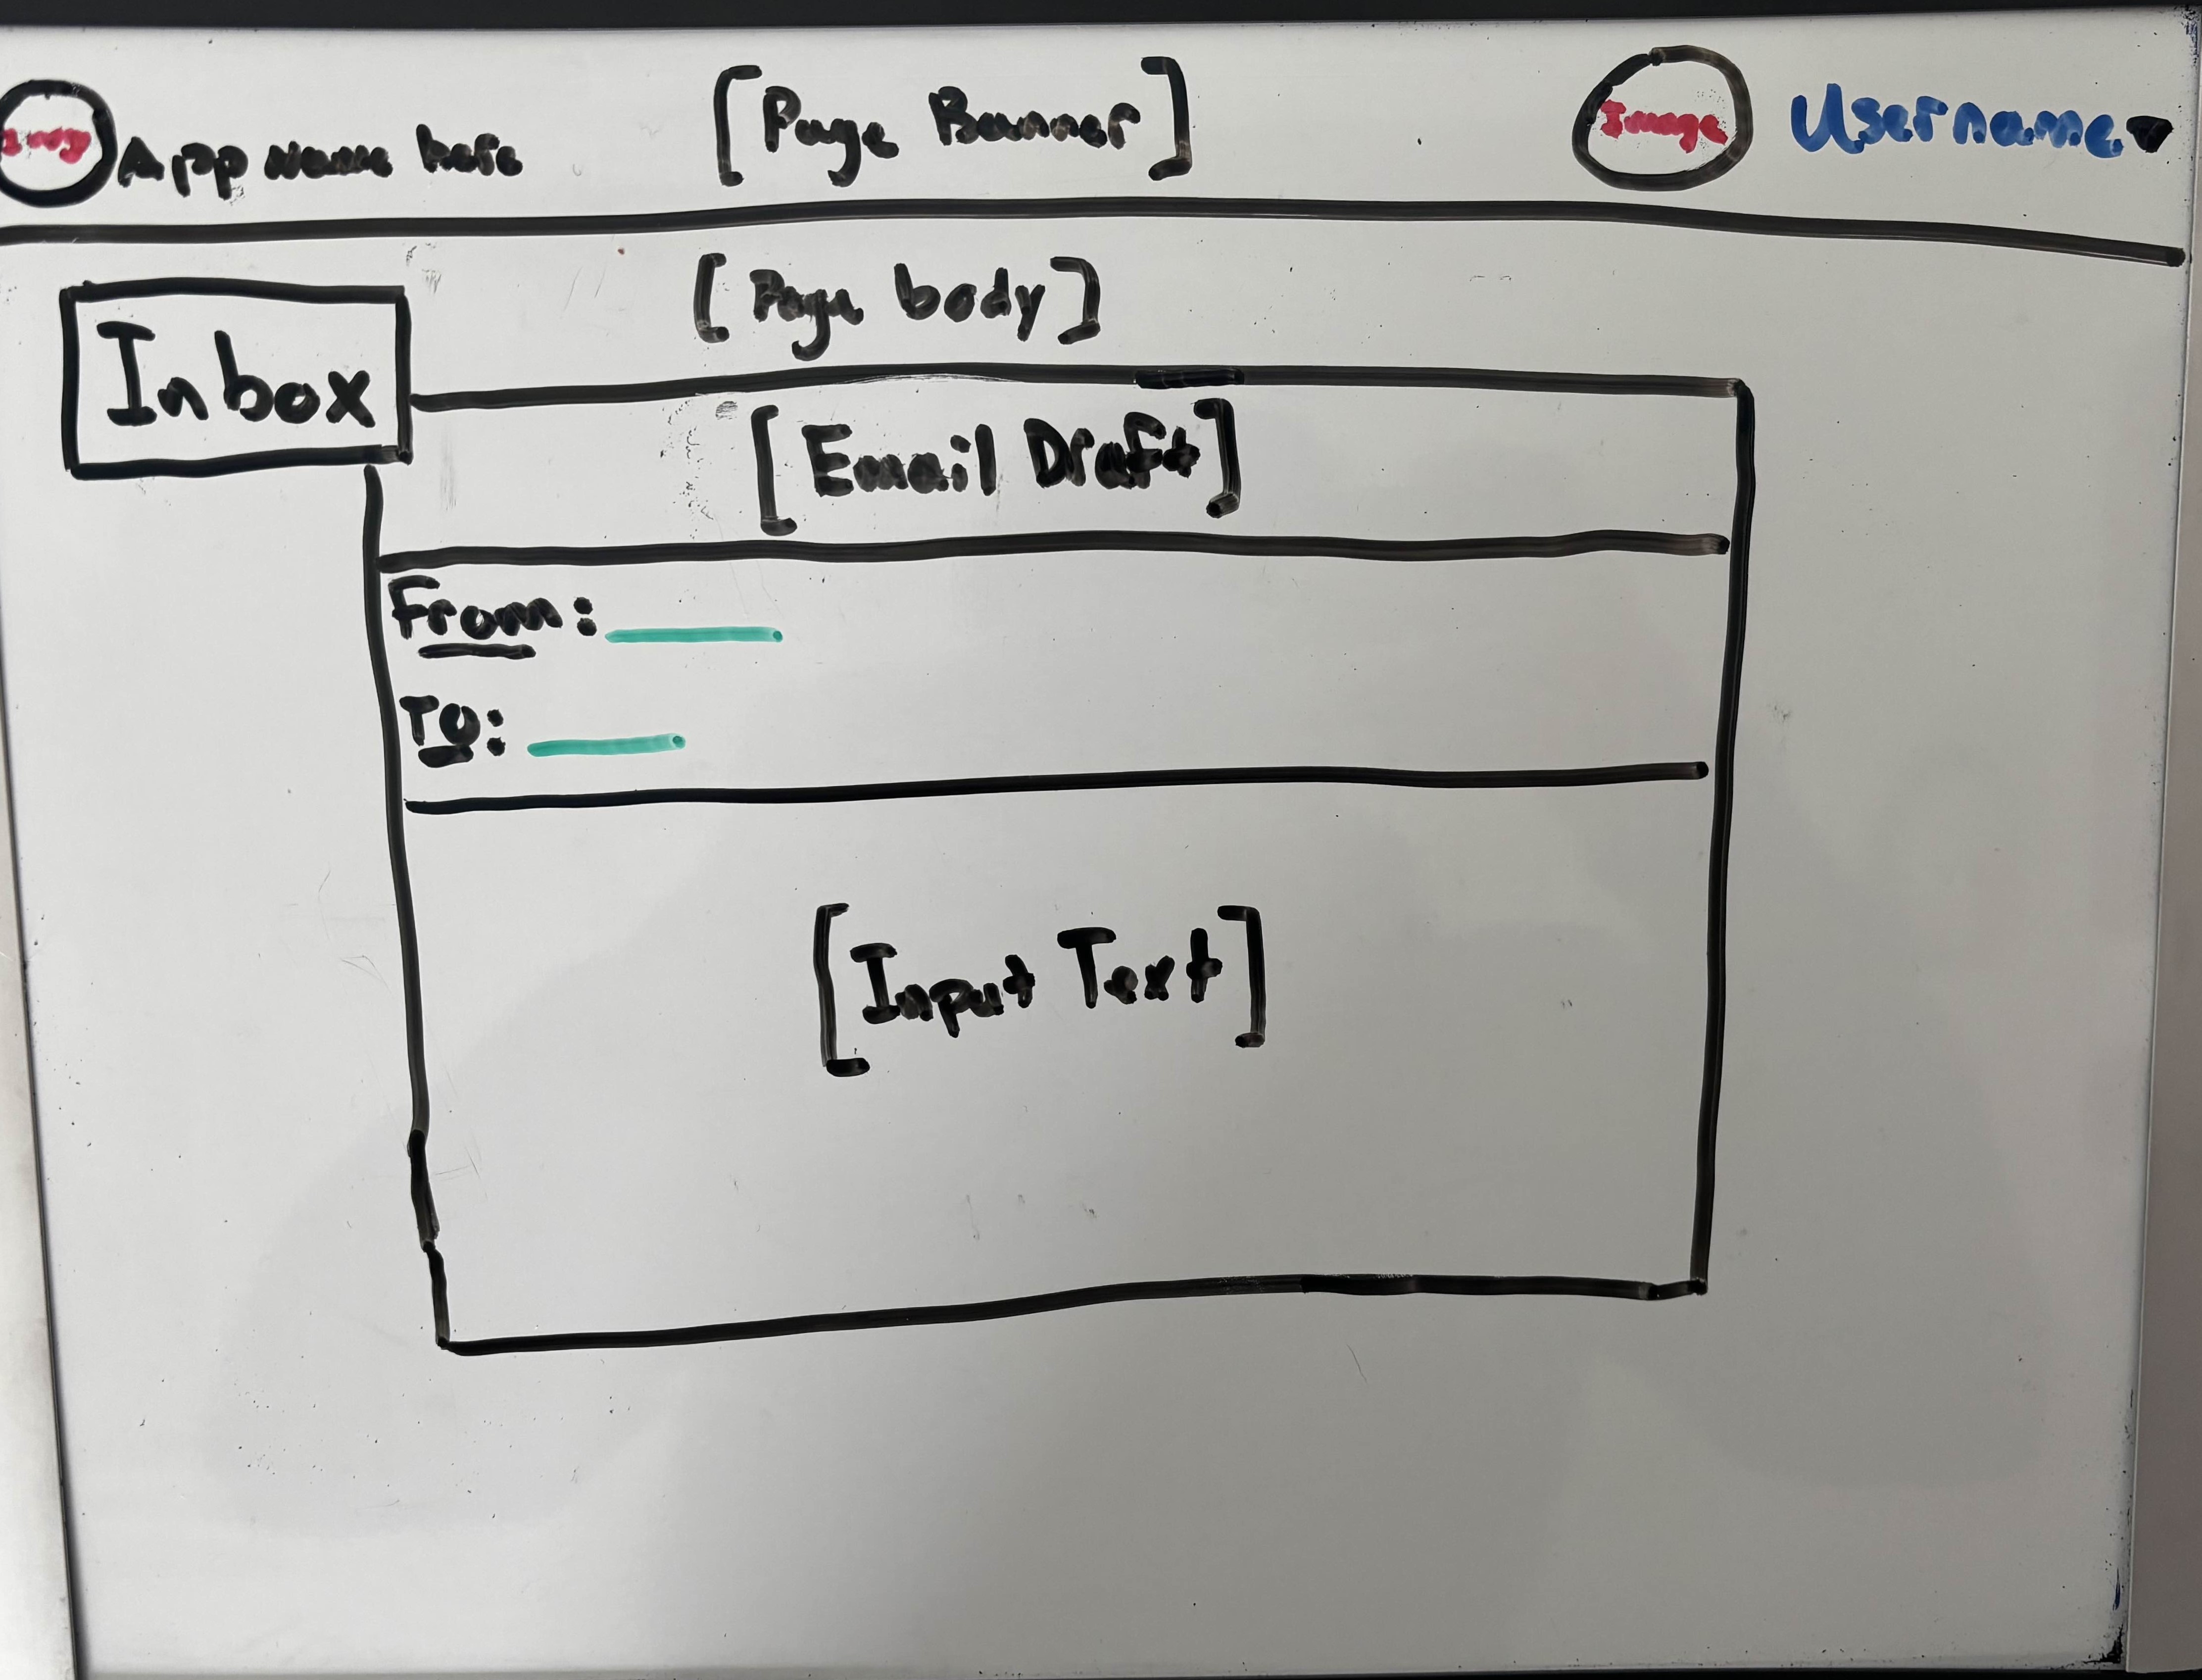 App Name here [Page Banner] Image Username
[Page body]
Inbox
[Email Draft]
From:
To:
[Input Text]